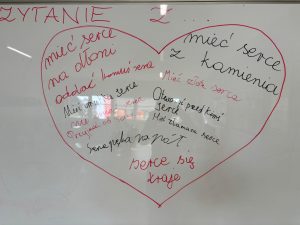 CZYTANIE Z ...
mieć serce
na dłoni
mieć serce
z kamienia
oddać komuś serce
Mieć złote serce
Otworzyć przed kimś
serce
Mieć złamane serce
Serce pęka na pół
serce się
kraje